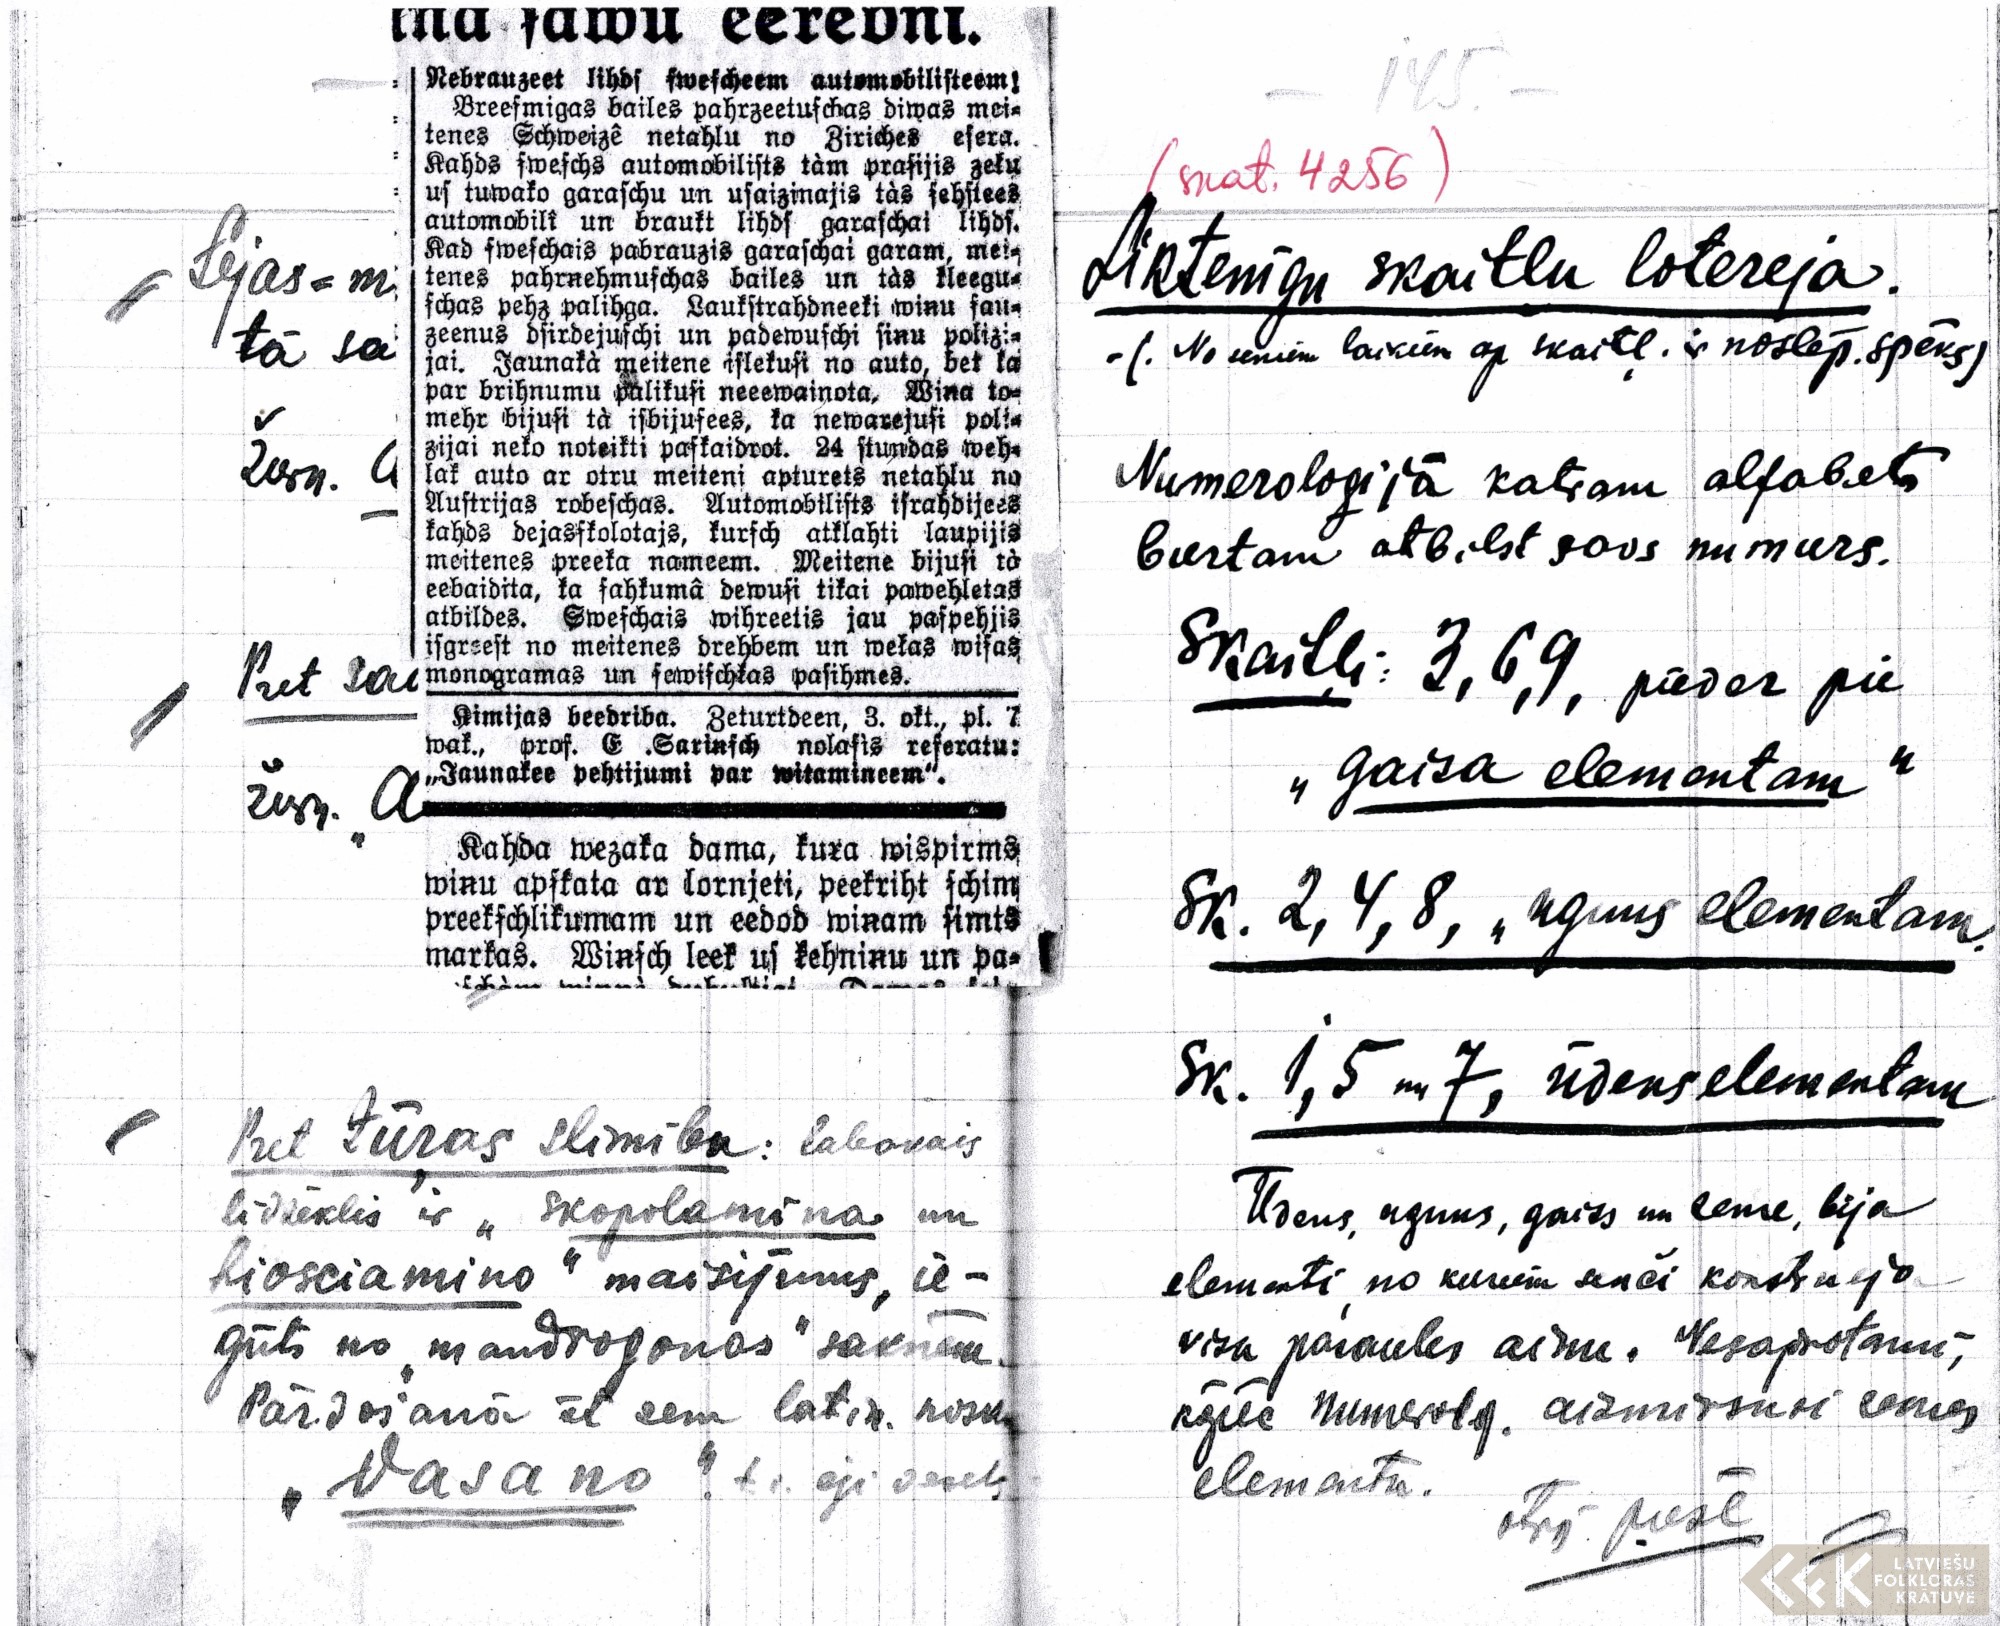 sawu eeredni.
Nebrauzeet lihds swescheem automobilisteem!
Breesmigas bailes pahrzeetuschas diwas mei-
tenes Schweizê netahlu no Ziriches esera.
Kahds sweschs automobilists tàm prasijis zeļu
us tuwako garaschu un usaizinajis tàs sehstees
automobilî un braukt lihds garaschai lihds.
Kad sweschais pabrauzis garaschai garam, mei-
tenes pahrņehmuschas bailes un tàs kleegu-
schas pehz palihga. Laukstrahdneeki winu sau-
zeenus dsirdejuschi un padewuschi sinu polizi-
jai. Jaunakà meitene islekusi no auto, bet kà
par brihnumu palikusi neeewainota. Wina to-
mehr bijusi tà isbijusees, ka newarejusi poli-
zijai neko noteikti paskaidrot. 24 stundas weh-
lak auto ar otru meiteni apturets netahlu no
Austrijas robeschas. Automobilists israhdijees
kahds dejasskolotajs, kursch atklahti laupijis
meitenes preeka nameem. Meitene bijusi tà
eebaidita, ka sahkumâ dewusi tikai pawehletas
atbildes. Sweschais wihreetis jau paspehjis
isgreest no meitenes drehbem un wekas wisas
monogramas un sewischkas pasihmes.
Kimijas beedriba. Zeturtdeen, 3. okt., pl. 7
wak., prof. E .Sarinsch nolasis referatu:
„Jaunakee pehtijumi par witamineem".
Kahda wezaka dama, kura wispirms
winu apskata ar lornjeti, peekriht schim
preekschlikumam un eedod winam simts
markas. Winsch leek us kehninu un pa-
Sejas = m
tā sa
žurn. A
Pret sau
žurn. „A
Pret jūŗas slimību: labakais
līdzeklis ir „skopolamina un
hiosciamino" maisījums, ie-
gūts no „mandragonas" saknēm.
Pārdošanā iet zem latin. nosau
„Vasano" t. i. ej vesels
- 145. -
(skat. 4256)
Liktenīgu skaitļu lotereja.
- (. No seniem laikiem ap skaitļ. ir noslēp. spēks)
Numerologijā katram alfabeta
burtam atbilst savs numurs.
Skaitļi: 3, 6, 9, pieder pie
„gaisa elementam"
Sk. 2, 4, 8, „uguns elementam.
Sk. 1, 5 un 7, ūdens elementam
Ūdens, uguns, gaiss un zeme, bija
elementi, no kuriem senči konstrueja
visu pasaules ainu. Nesaprotami,
kāpēc numerolg. aizmirsusi zemes
elementu.
otrā pusē
LATVIEŠU
FOLKLORAS
KRĀTUVE